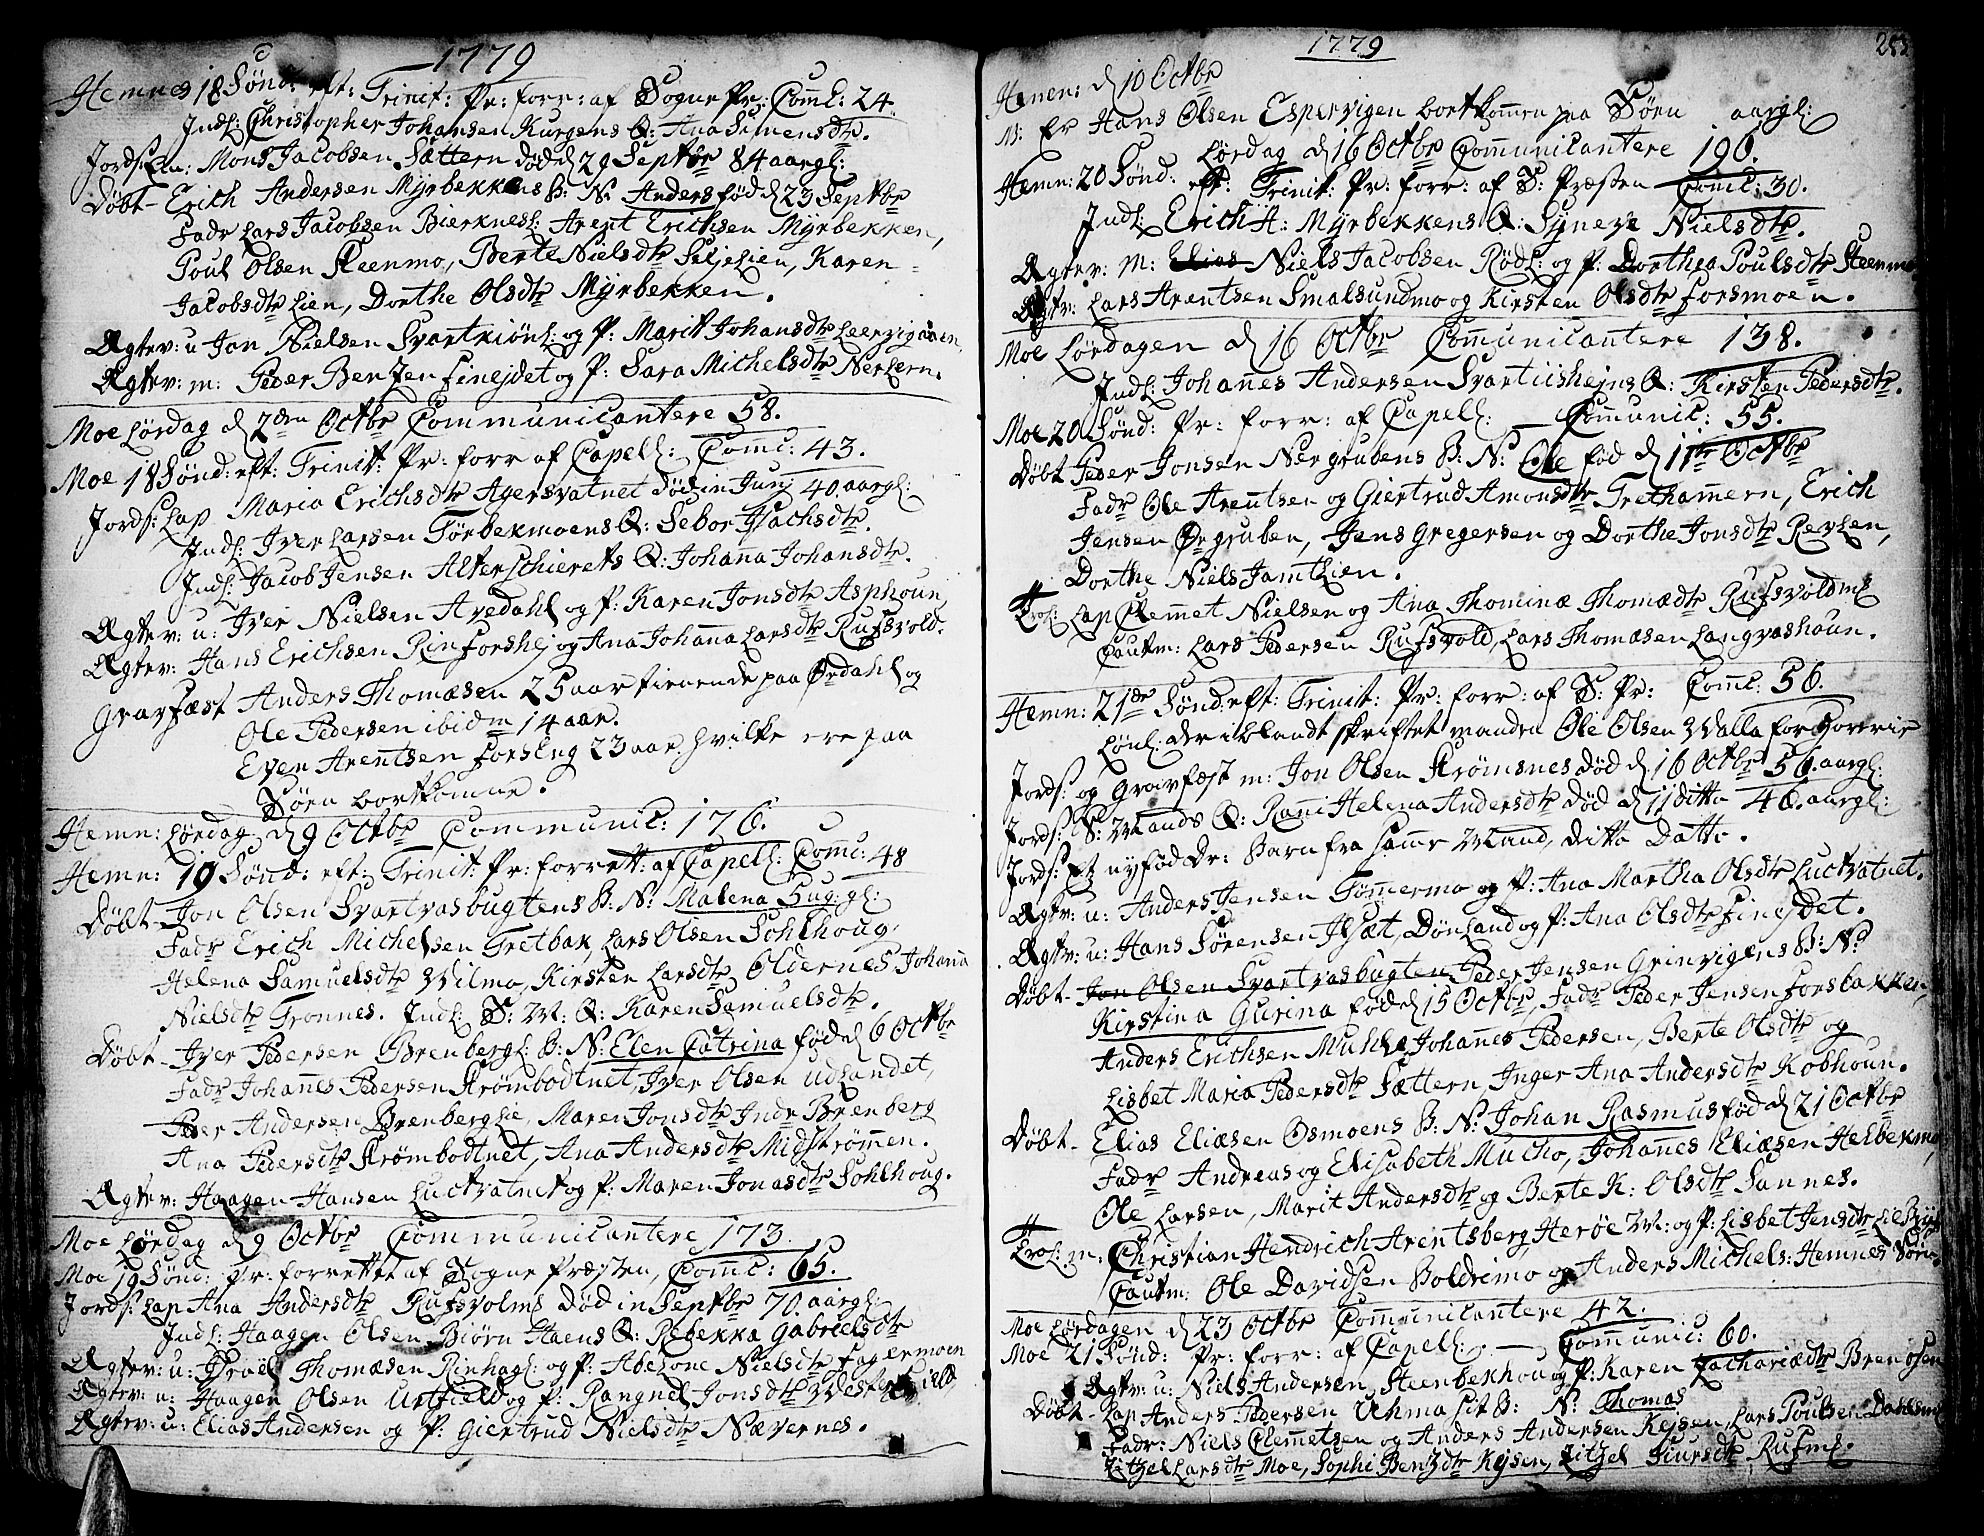 1779
Hemnes 18 Sønd: eft: Trinit: Pr: forr: af Sogne Pr: Com̄l: 24.
Indl: Christopher Johansen Kurgens Q: Ana Simensdtr.
Jords: Mons Jacobsen Sættern død d 29 Septbr 84 aar gl:
Døbt - Erich Andersen Myrbekkens B: N: Anders fød d 23 Septbr
Fadr Lars Jacobsen Bierknesl: Arent Erichsen Myrbekken,
Poul Olsen Steenmo, Berte Nielsdtr Seljelien, Karen
Jacobsdtr Lien, Dorthe Olsdtr Myrbekken.
Ægtev: u Jon Nielsen Svartkiønl: og P: Marit Johansdtr
Ægtev: m: Peder Bentzen Finejdet og P: Sara Michelsdtr Nerlern.
Moe Lørdag d 2den Octbr Communicantere 58.
Moe 18 Sønd: eft: Trinit: Pr: forr af Capell: Com̄l: 43.
Jords: Lap Maria Erichsdtr Agersvatnet død in Junj 40 aar gl:
Indl: Iver Larsen Tørbekmoens Q: Sebor Isachsdtr.
Indl: Jacob Jensen Alterschierets Q: Johan̄a Johansdtr.
Ægtev: u: Iver Nielsen Avedahl og P: Karen Jonsdtr Asphoun
Ægtev: Hans Erichsen Rinforshej og Ana Johan̄a Larsdtr Rufsvold.
Gravfæst Anders Thomæsen 25 aar tienende paa Ørdahl og
Ole Pedersen ibidm 14 aar.
Even Arentsen Forseng 23 aar. hvilke ere paa
Søen bortkomne.
Hemn: Lørdag d 9 Octbr Communic: 176.
Hemn: 19 Sønd: eft: Trinit: Pr: forrett: af Capell: Com̄l: 48
Døbt - Jon Olsen Svartvasbugtens B: N: Malena 5 ug: gl:
Fadr Erich Michelsen Tretbak, Lars Olsen Sohlhoug,
Helena Samuelsdtr Wilmo, Kirsten Larsdtr Oldernes, Johan̄a
Nielsdtr Tronnes. Indl: S: M: Q: Karen Samuelsdtr.
Døbt - Iver Pedersen Brenbergl: B: N: Elen Catrina fød d 6 Octbr
Fadr Johan̄es Pedersen Strømbodtnet, Iver Olsen Udlandet,
Peder Andersen Brenberglie, Maren Jonsdtr Indr Brenberg
Ana Pedersdtr Strømbodtnet, Ana Andersdtr Midstrøm̄en.
Ægtev: Haagen Hansen Luctvatnet og P: Maren Jonasdtr Sohlhoug.
Moe Lørdag d 9 Octbr Communicantere 173.
Moe 19 Sønd: Pr: forrettet af Sogne Præsten, Com̄l: 65.
Jords: Lap Ana Andersdtr Rufsvolms død in Septbr 70 aar gl:
Indl: Haagen Olsen Biørn Haens Q: Rebekka Gabrielsdtr
Ægtev: u: Israel Thomæsen Rinhagl: og P: Abelone Nielsdtr Fagermoen
Ægtev: u: Haagen Olsen Urtfield og P: Rangnel Jonsdtr
Ægtev: u: Elias Andersen og P: Giertrud Nielsdtr Nævernes.
1779
Hemn: d 10 Octbr
N: Er Hans Olsen Espevigen bortkom̄en paa Søen aar gl:
Lørdag d 16 Octbr Com̄unicantere 190.
Hemn: 20 Sønd: eft: Trinit: Pr: forr: af S: Præsten Com̄l: 30.
Indl: Erich A: Myrbekkens Q: Synere Nielsdtr.
Ægtev: m: Elias Niels Jacobsen Rødl: og P: Dorthea Poulsdtr Steenmo
Ægtv: Lars Arentsen Smalsundmo og Kirsten Olsdtr Forsmoen.
Moe Lørdagen d 16 Octbr Com̄unicantere 138.
Indl: Johan̄es Andersen Svartiishejns Q: Kirsten Pedersdtr.
Moe 20 Sønd: Pr: forr: af Capell: — Com̄unic: 55.
Døbt Peder Jonsen Nergrubens B: N: Ole fød d 11te Octbr
Fadr Ole Arentsen og Giertrud Amonsdtr Trethamern, Erich
Jensen Ørgruben, Jens Gregersen og Dorthe Jonsdtr Revlen,
Dorthe Niels Jamtlien.
Trol: Lap Clem̄et Nielsen og Ana Thominæ Thomædtr Rufsvoldml
Cautm: Lars Pedersen Rufsvold, Lars Thomæsen Langvashaun.
Hemn: 21de Sønd: eft: Trinit: Pr: forr: af S: Pr: Com̄l: 56.
Lønl: der iblandt skriftet manden Ole Olsen Walla for Horerie
Jords: og Gravfæst m: Jon Olsen Strømsnes død d 16 Octbr 56 aar gl:
Jords: S: Mands Q: Rani Helena Andersdtr død d 11 ditto 46 aar gl:
Jords: Et nyfød Dr: Barn fra samme Mand, ditto Datto.
Ægtv: u: Anders Jensen Tøm̄ermo og P: Ana Martha Olsdtr Luctvatnet.
Ægtv: u: Hans Sørensen Ilsæt, Dønland og P: Ana Olsdtr Finejdet.
Døbt - Jon Olsen Svartvasbugten Peder Jensen Grinvigens B: N:
Kirstina Gurina fød d 15 Octbr, Fadr Peder Jensen Forsbakken,
Anders Erichsen Muhle, Johan̄es Pedersen, Berte Olsdtr og
Lisbet Maria Pedersdtr Sættern, Inger Ana Andersdtr Kobhoun.
Døbt - Elias Eliæsen Osmoens B: N: Johan Rasmus fød d 21 Octbr
Fadr Andreas og Elisabeth Mucho, Johan̄es Eliæsen Helbekmo,
Ole Larsen, Marit Andersdtr og Berte K: Olsdtr Sannes.
Trol: m: Christian Hendrich Arentsberg Herøe M: og P: Lisbet Jensdtr
Cautm: Ole Davidsen Boldremo og Anders Michels: Hemnes Søren.
Moe Lørdagen d 23 Octbr Com̄unicantere 42.
Moe 21 Sønd: Pr: forr: af Capell: — Com̄unic: 60.
Ægtev: u: Niels Andersen Steenbekhou og P: Karen Zachariædtr Brenøsen
Døbt - Lap Anders Pedersen Uhmasit B: N: Thomas
Fadr: Niels Clem̄etsen og Anders Andersen Kejsen, Lars Poulsen
Zitzel Larsdtr Moe, Sophi Bentzdtr Kejsen, Zitzel Siursdtr Rufml.